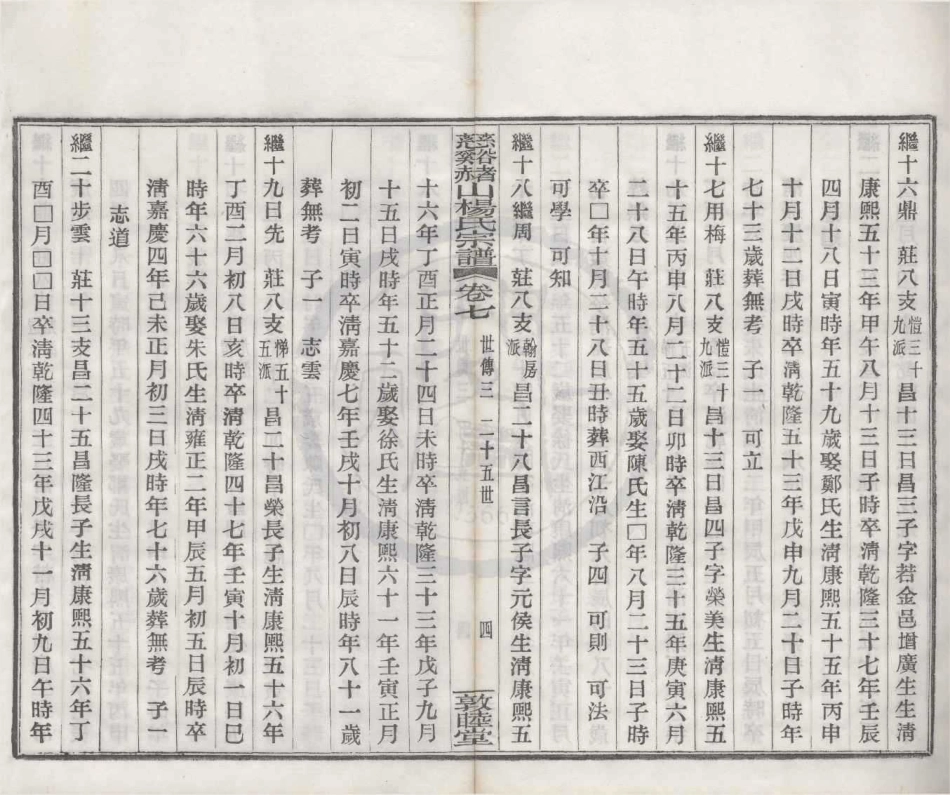 繼十六鼎　莊八支愷三十九派昌十三日昌三子字若金邑增廣生生清
康熙五十三年甲午八月十三日子時卒清乾隆三十七年壬辰
四月十八日寅時年五十九歲娶鄭氏生清康熙五十五年丙申
十月十二日戌時卒清乾隆五十三年戊申九月二十日子時年
七十三歲葬無考　子一　可立
繼十七用梅　莊八支愷三十九派昌十三日昌四子字榮美生清康熙五
十五年丙申八月二十二日卯時卒清乾隆三十五年庚寅六月
二十八日午時年五十五歲娶陳氏生□年八月二十三日子時
卒□年十月二十八日丑時葬西江沿　子四　可則　可法
可學　可知
繼十八繼周　莊八支翰房派昌二十八昌言長子字元侯生清康熙五
慈谿赭山楊氏宗譜　卷七　世傳三　二十五世　四　敦睦堂
十六年丁酉正月二十四日未時卒清乾隆三十三年戊子九月
十五日戌時年五十二歲娶徐氏生清康熙六十一年壬寅正月
初二日寅時卒清嘉慶七年壬戌十月初八日辰時年八十一歲
葬無考　子一　志雲
繼十九日先　莊八支悌五十五派昌二十昌榮長子生清康熙五十六年
丁酉二月初八日亥時卒清乾隆四十七年壬寅十月初一日巳
時年六十六歲娶朱氏生清雍正二年甲辰五月初五日辰時卒
清嘉慶四年己未正月初三日戌時年七十六歲葬無考　子一
志道
繼二十步雲　莊十三支昌二十五昌隆長子生清康熙五十六年丁
酉□月□□日卒清乾隆四十三年戊戌十一月初九日午時年